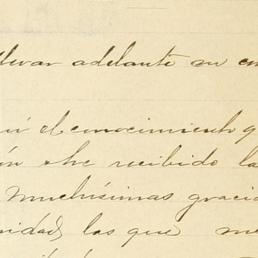 llevar adelante su em
el conocimiento q
he recibido la
Muchísimas gracia
nidad, las que me